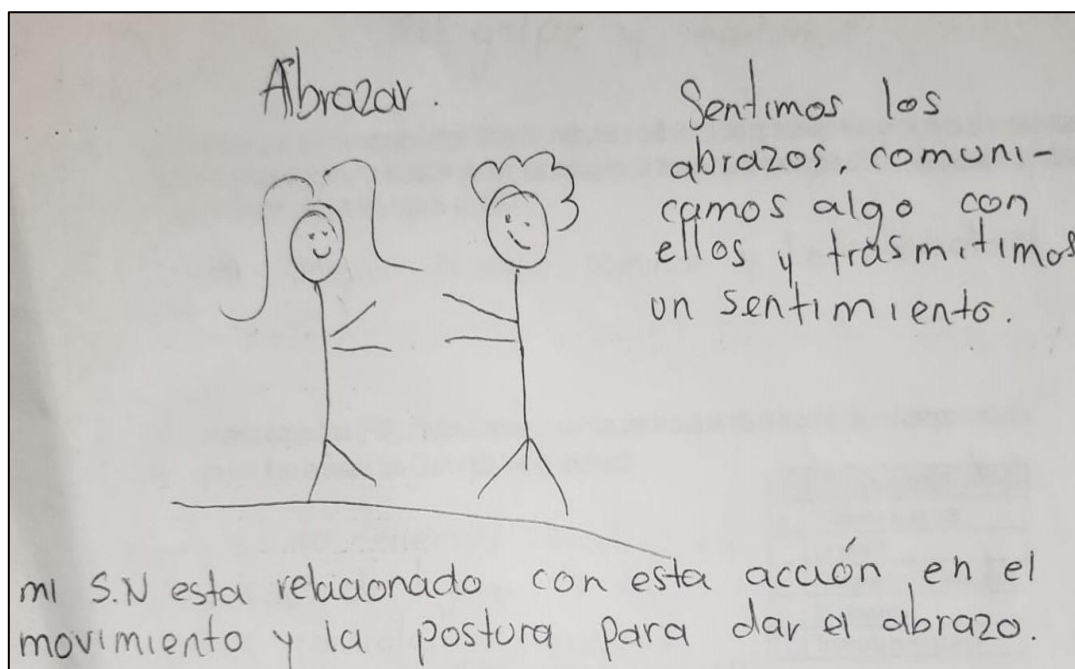 Abrazar.
Sentimos los
abrazos, comuni-
camos algo con
ellos y trasmitimos
un sentimiento.
mi S.N esta relacionado con esta acción, en el
movimiento y la postura para dar el abrazo.